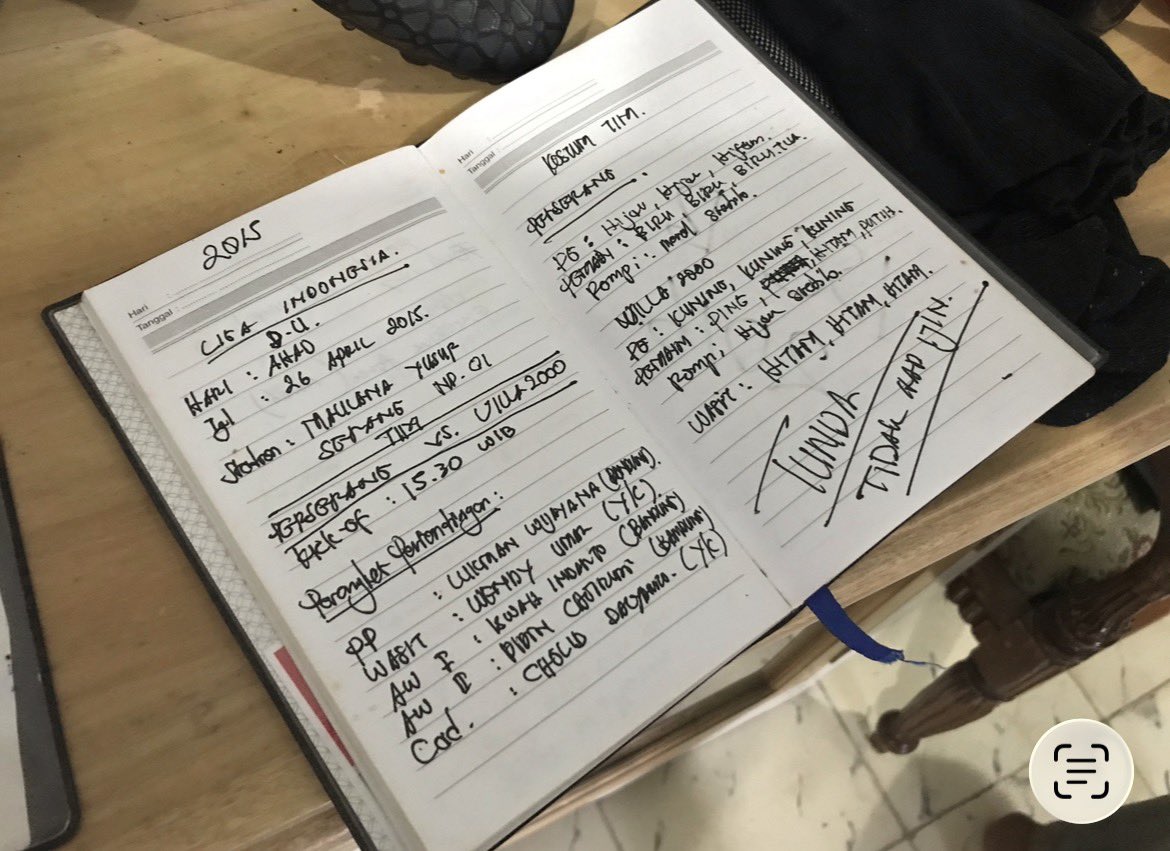 2015
Hari :
Tanggal :
LIGA INDONESIA.
D.U.
HARI : AHAD
Tgl : 26 APRIL 2015.
Station : MAULANA YUSUF
SERANG NP. 01
TIM
PERSERANG VS. VILLA 2000
Kick-of : 15.30 WIB
Perangkat Pertandingan :
PP : LUKMAN WIJAYANA (BANDUNG).
WASIT : WENDY UMAR (Y/C)
AW I : IWAN INDANTO (BANDUNG)
AW II : DIDIN (BANDUNG)
Cad. : CHOLID DACYANTO. (Y/C)
Hari :
Tanggal :
KOSTUM TIM.
PERSERANG.
PG : Hijau, Hijau, Hijau.
PEMAIN : BIRU, BIRU, BIRU TUA.
Rompi : Merah Stabilo.
VILLA 2000
PG : KUNING, KUNING, KUNING
PEMAIN : PINK, HITAM, PUTIH.
Rompi : Hijau Stabilo.
WASIT : HITAM, HITAM, HITAM.
TUNDA
TIDAK ADA IJIN.